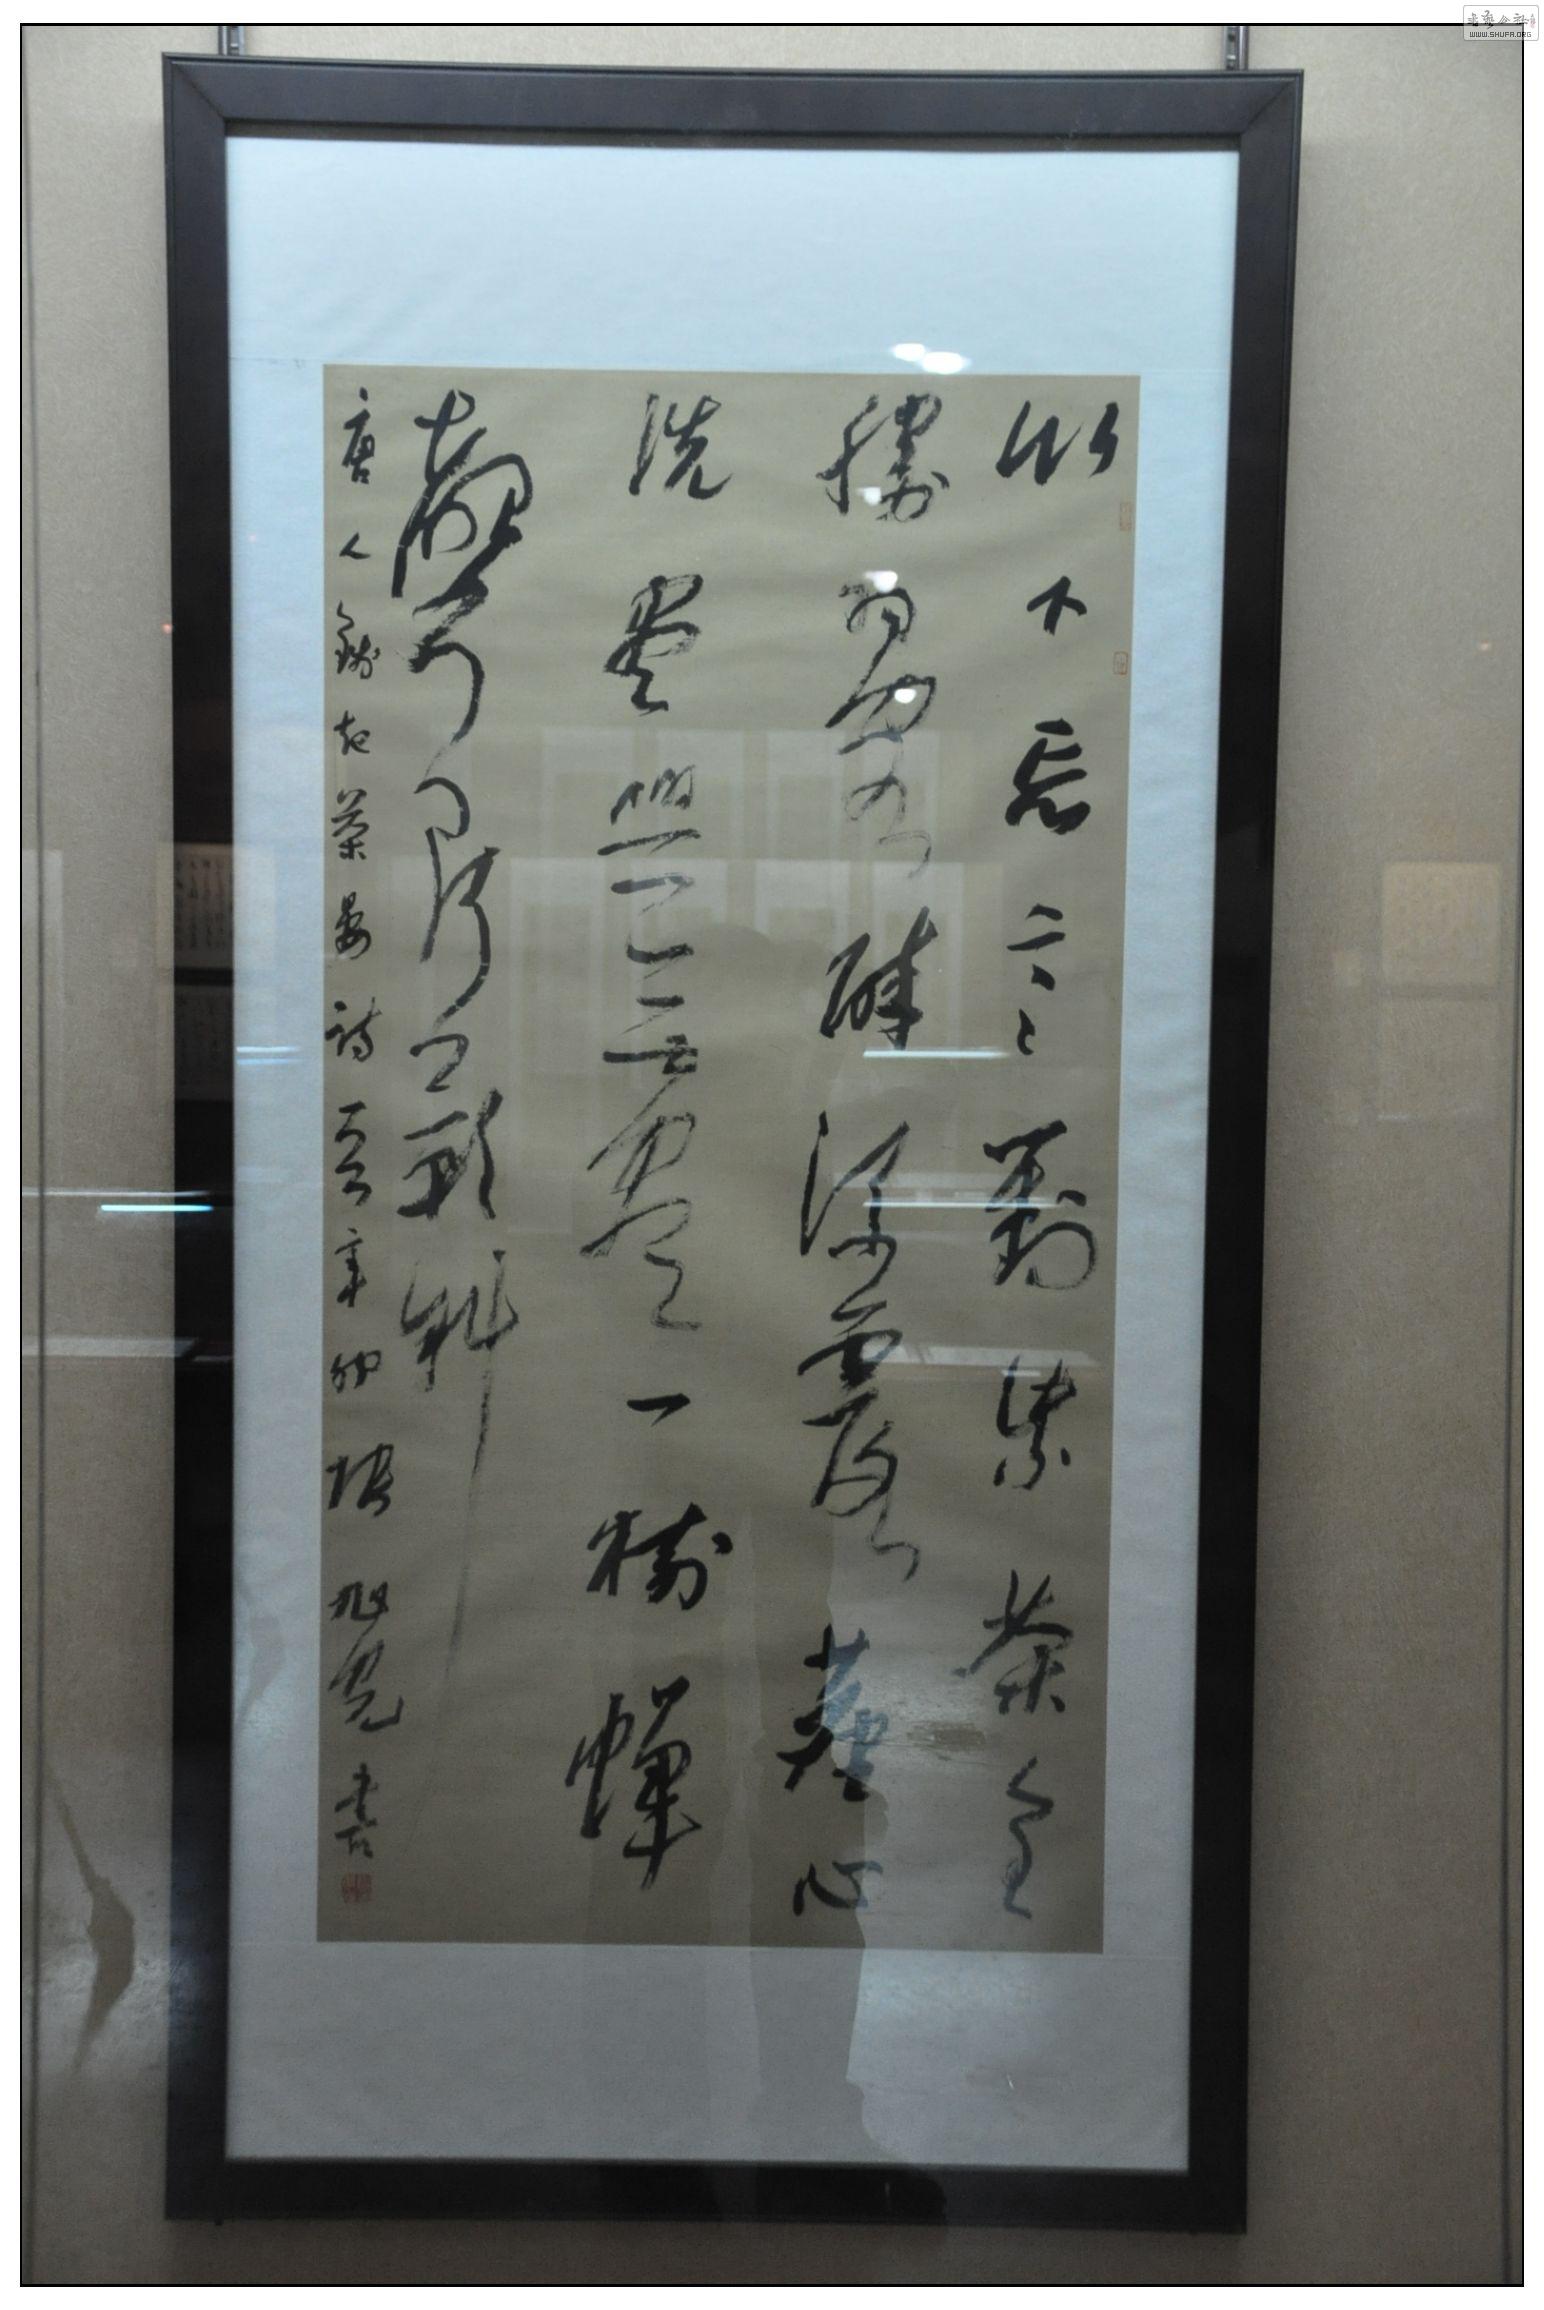 竹下忘言對紫茶全
勝羽客醉流霞塵心
洗盡興盡一樹蟬
聲片影斜
唐人錢起茶宴詩一首辛卯張旭光書
书艺公社
WWW.SHUFA.ORG